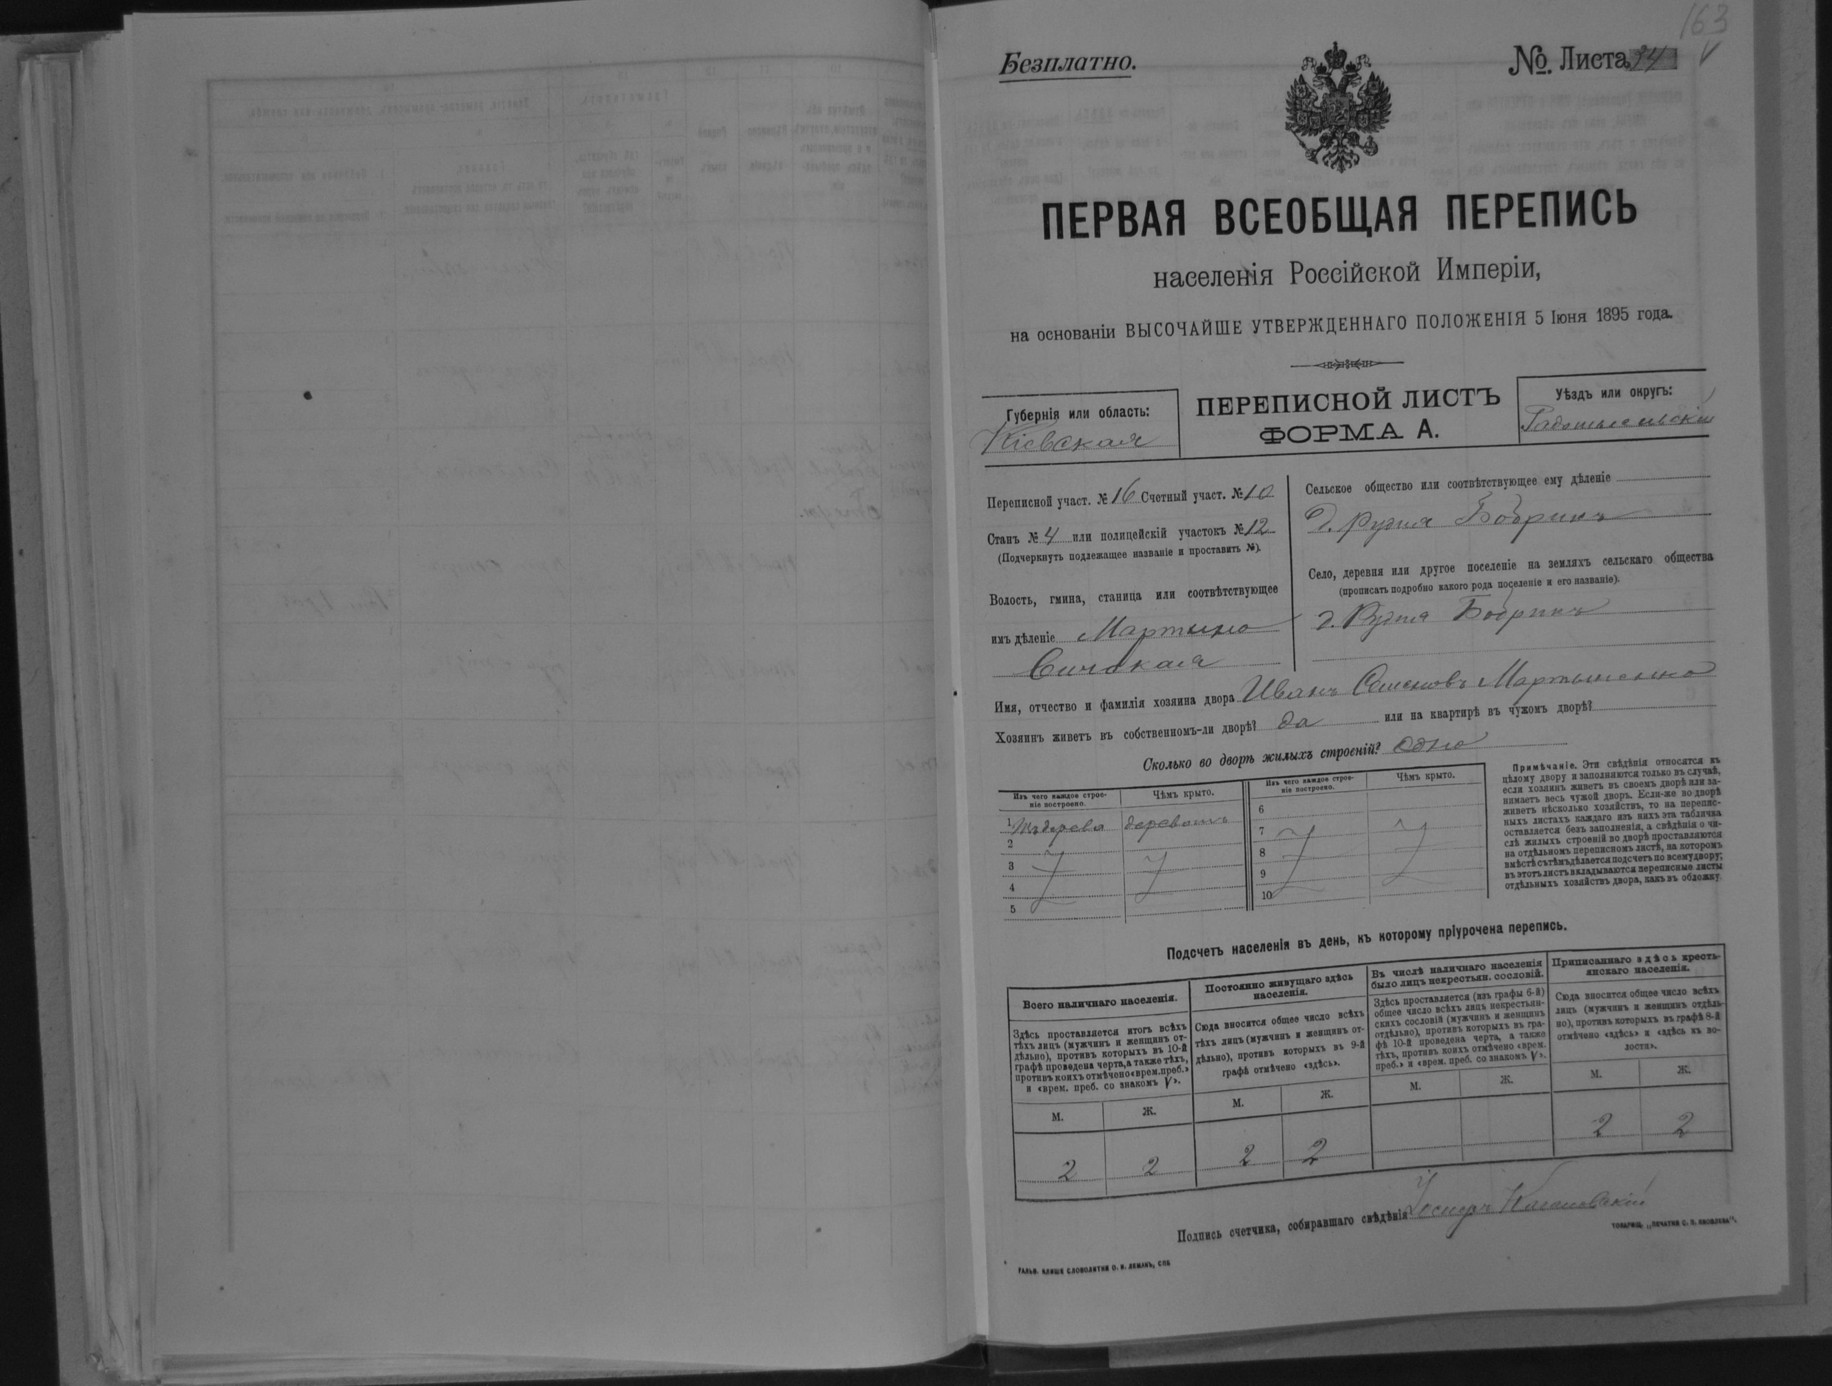 163
Безплатно.
№ Листа 24
ПЕРВАЯ ВСЕОБЩАЯ ПЕРЕПИСЬ
населенія Россійской Имперіи,
на основаніи ВЫСОЧАЙШЕ УТВЕРЖДЕННАГО ПОЛОЖЕНІЯ 5 Іюня 1895 года.
Губернія или область:
Кіевская
ПЕРЕПИСНОЙ ЛИСТЪ
ФОРМА А.
Уѣздъ или округъ:
Радомысльскій
Переписной участ. № 16 Счетный участ. № 10
Станъ № 4 или полицейскій участокъ № 12
(Подчеркнуть подлежащее названіе и проставить №).
Волость, гмина, станица или соотвѣтствующее
имъ дѣленіе Мартыно
Сельское общество или соотвѣтствующее ему дѣленіе
д. Рудня
Село, деревня или другое поселеніе на земляхъ сельскаго общества
(прописать подробно какого рода поселеніе и его названіе).
д. Рудня
Имя, отчество и фамилія хозяина двора Иванъ Семеновъ Мартыненко
Хозяинъ живетъ въ собственномъ-ли дворѣ? да или на квартирѣ въ чужомъ дворѣ?
Сколько во дворѣ жилыхъ строеній? одно
Изъ чего каждое строе-
ніе построено.
Чѣмъ крыто.
1 Изъ дерева деревомъ
2
3
4
5
Изъ чего каждое строе-
ніе построено.
Чѣмъ крыто.
6
7
8
9
10
Примѣчаніе. Эти свѣдѣнія относятся къ
цѣлому двору и заполняются только въ случаѣ,
если хозяинъ живетъ въ своемъ дворѣ или за-
нимаетъ весь чужой дворъ. Если-же во дворѣ
живетъ нѣсколько хозяйствъ, то на перепис-
ныхъ листахъ каждаго изъ нихъ эта табличка
оставляется безъ заполненія, а свѣдѣнія о чи-
слѣ жилыхъ строеній во дворѣ проставляются
на отдѣльномъ переписномъ листѣ, на которомъ
вмѣстѣ съ тѣмъ дѣлается подсчетъ по всему двору;
въ этотъ листъ вкладываются переписные листы
отдѣльныхъ хозяйствъ двора, какъ въ обложку.
Подсчетъ населенія въ день, къ которому пріурочена перепись.
Всего наличнаго населенія.
Здѣсь проставляется итогъ всѣхъ
тѣхъ лицъ (мужчинъ и женщинъ от-
дѣльно), противъ которыхъ въ 10-й
графѣ проведена черта, а также тѣхъ,
противъ коихъ отмѣчено «врем. преб.»
и «врем. преб. со знакомъ V».
М. Ж.
2 2
Постоянно живущаго здѣсь
населенія.
Сюда вносится общее число всѣхъ
тѣхъ лицъ (мужчинъ и женщинъ от-
дѣльно), противъ которыхъ въ 9-й
графѣ отмѣчено «здѣсь».
М. Ж.
2 2
Въ числѣ наличнаго населенія
было лицъ некрестьян. сословій.
Здѣсь проставляется (изъ графы 6-й)
общее число всѣхъ лицъ некрестьян-
скихъ сословій (мужчинъ и женщинъ
отдѣльно), противъ которыхъ въ гра-
фѣ 10-й проведена черта, а также
тѣхъ, противъ коихъ отмѣчено «врем.
преб.» и «врем. преб. со знакомъ V».
М. Ж.
Приписаннаго здѣсь кресть-
янскаго населенія.
Сюда вносится общее число всѣхъ
лицъ (мужчинъ и женщинъ отдѣль-
но), противъ которыхъ въ графѣ 8-й
отмѣчено «здѣсь» и «здѣсь къ во-
лости».
М. Ж.
2 2
Подпись счетчика, собиравшаго свѣдѣнія
ТОВАРИЩ. „ПЕЧАТНЯ С. П. ЯКОВЛЕВА".
ГАЛЬВ. КЛИШЕ СЛОВОЛИТНИ О. И. ЛЕМАНЪ, СПБ.